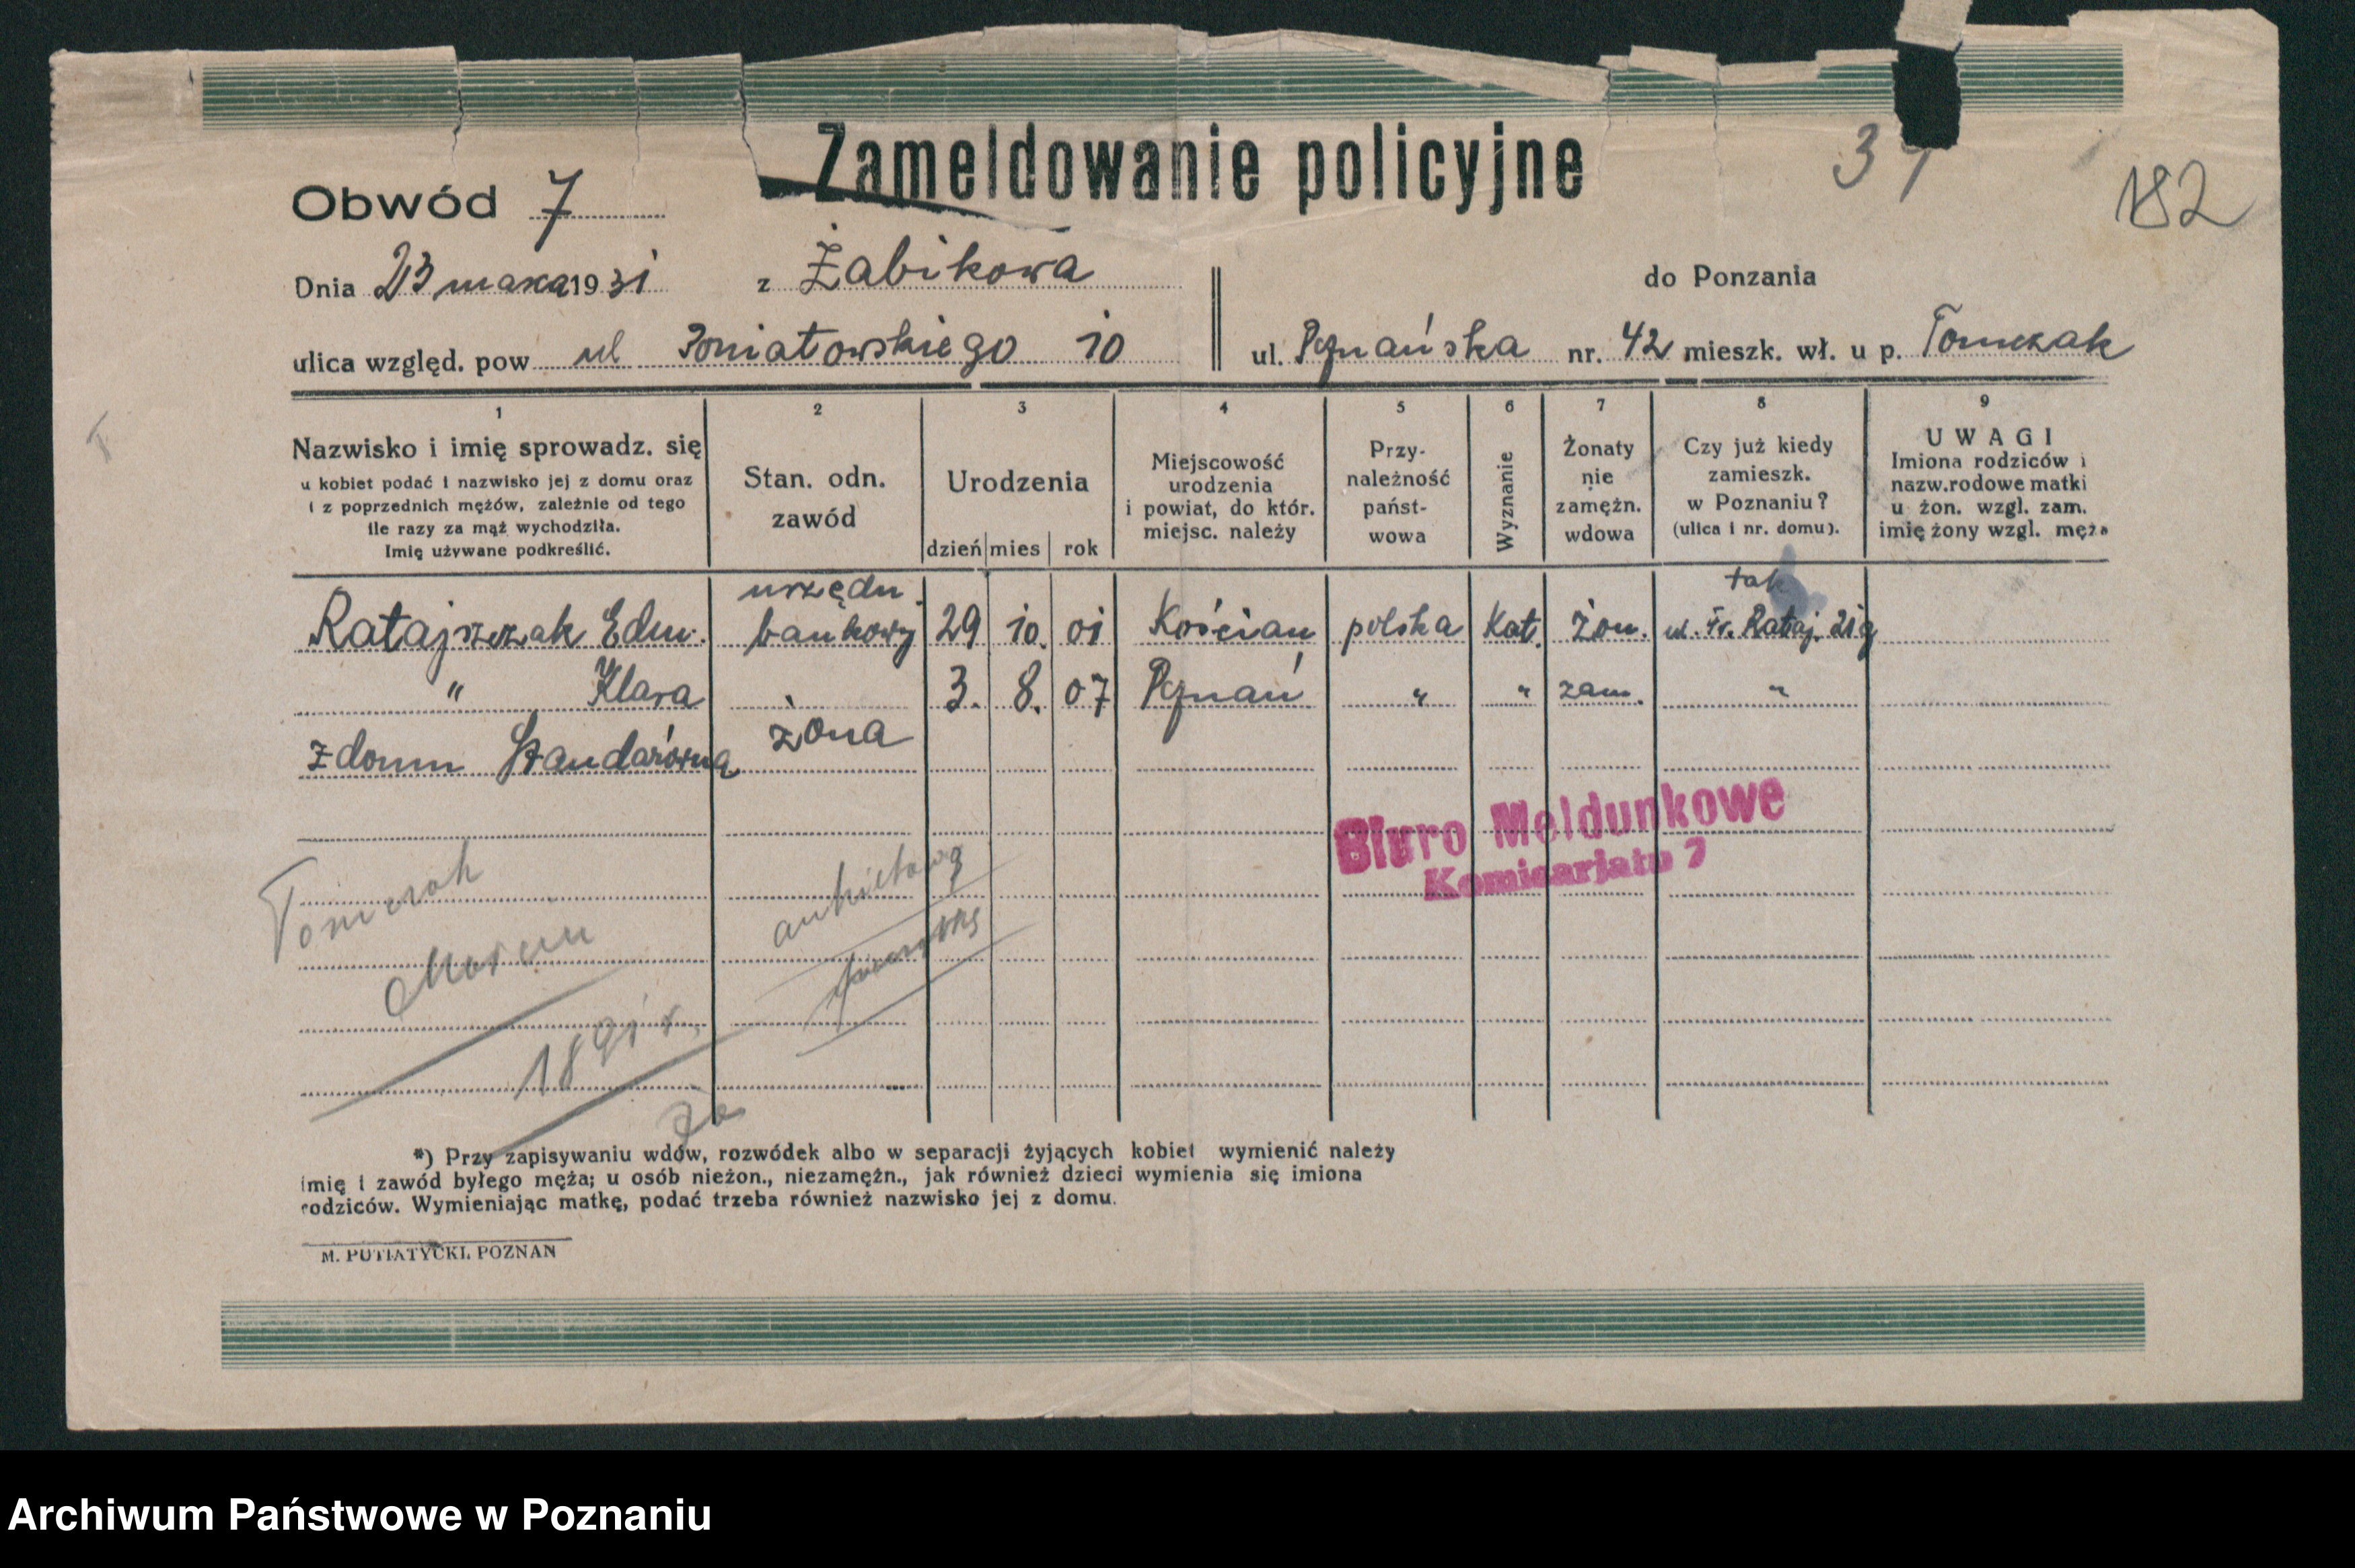 Zameldowanie policyjne
182
Obwód 7
Dnia 23 marca 1931 z Żabikowa do Ponzania
ulica względ. pow ul Poniatowskiego 10 ul. Poznańska nr. 42 mieszk. wł. u p. Tomczak
1 2 3 4 5 6 7 8 9
Nazwisko i imię sprowadz. się
u kobiet podać i nazwisko jej z domu oraz
i z poprzednich mężów, zależnie od tego
ile razy za mąż wychodziła.
Imię używane podkreślić.
Stan. odn.
zawód
Urodzenia
dzień mies rok
Miejscowość
urodzenia
i powiat, do któr.
miejsc. należy
Przy-
należność
państ-
wowa
Wyznanie
Żonaty
nie
zamężn.
wdowa
Czy już kiedy
zamieszk.
w Poznaniu?
(ulica i nr. domu).
UWAGI
Imiona rodziców i
nazw.rodowe matki
u żon. wzgl. zam.
imię żony wzgl. męża
urzędn. tak
Ratajszczak Edm. bankowy 29 10. 01 Kościan polska Kat. żon. ul. Fr. Rataj. 21g
" Klara 3. 8. 07 Poznań " " zam. "
z domu Szandarówna żona
Biuro Meldunkowe
Komisarjatu 7
Tomczak
Marcin
1891 r.
*) Przy zapisywaniu wdów, rozwódek albo w separacji żyjących kobiet wymienić należy
imię i zawód byłego męża; u osób nieżon., niezamężn., jak również dzieci wymienia się imiona
rodziców. Wymieniając matkę, podać trzeba również nazwisko jej z domu.
M. PUTIATYCKI, POZNAŃ
Archiwum Państwowe w Poznaniu